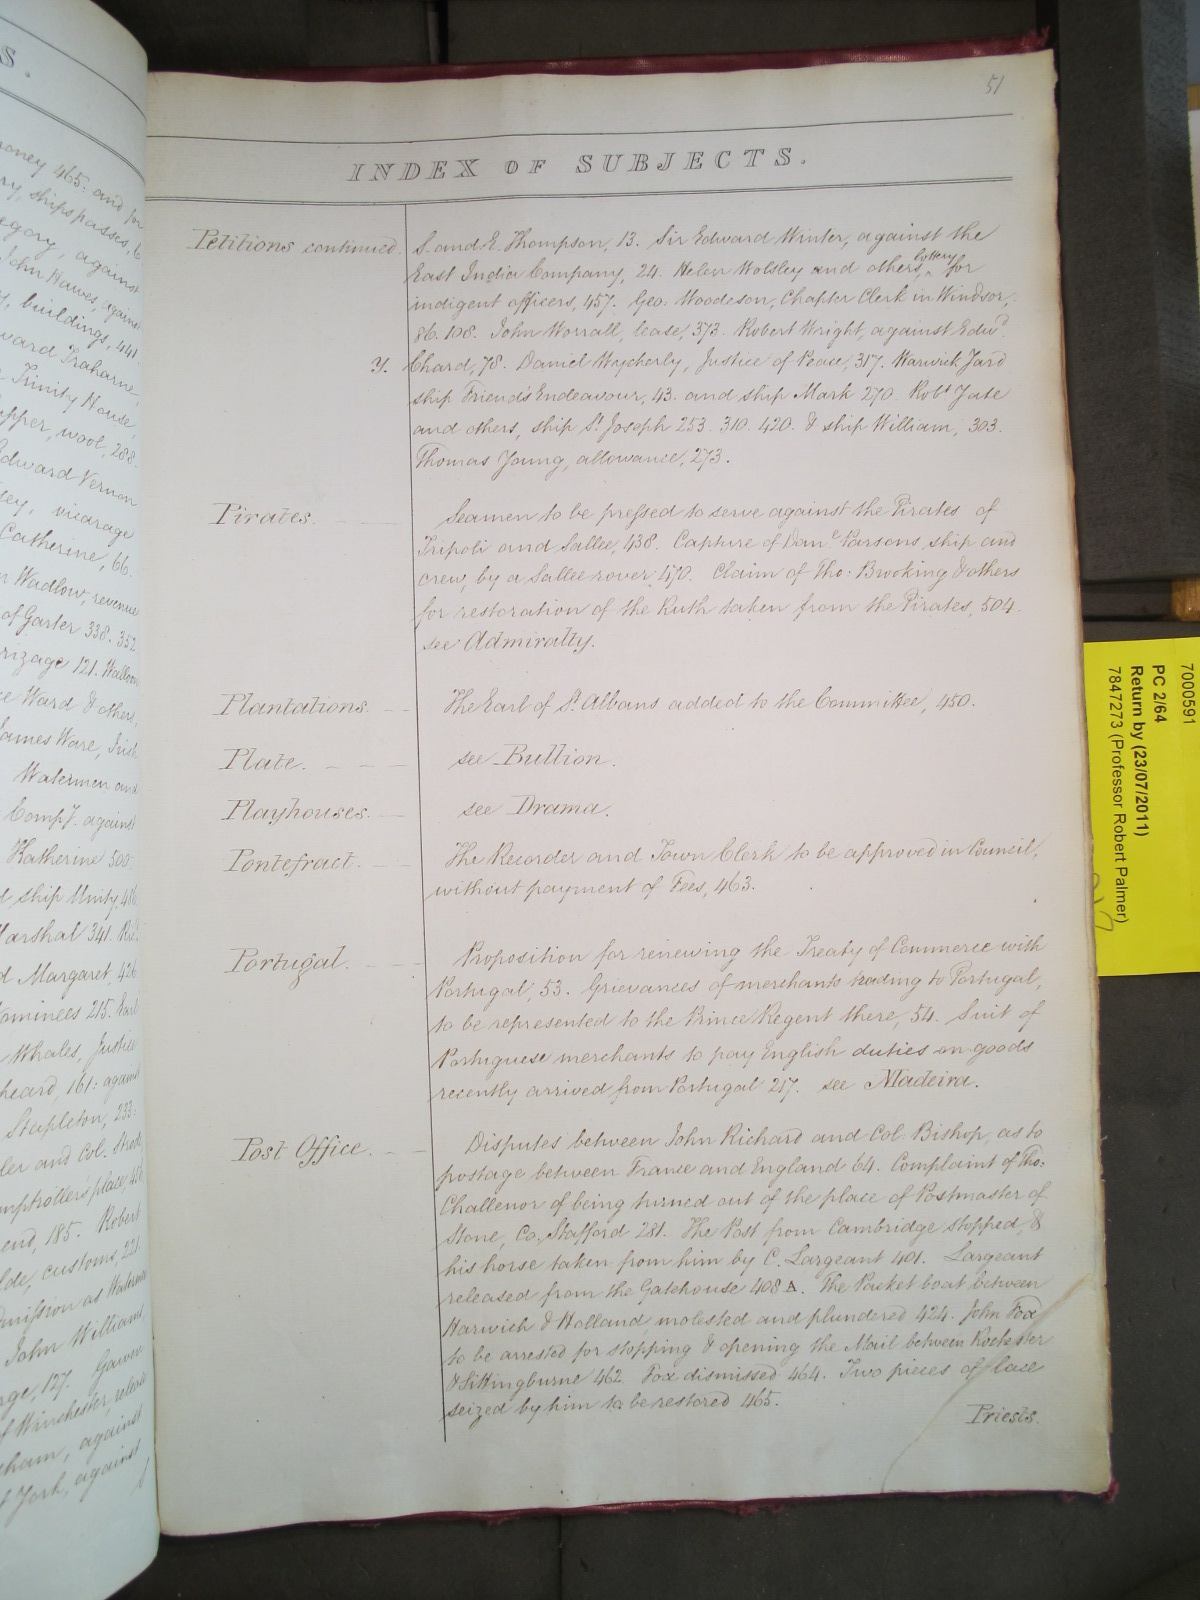 S.
money 465. and for
ry, ships passes, 6
egory, against
John Hawes, against
buildings, 441.
ward Traharne,
Trinity House,
opper, wool, 288.
Edward Vernon
sey, vicarage
Catherine, 66.
n Wadlow, revenue
of Garter 338. 352
rizage 121. Walloon
ce Ward & others,
James Ware, Irish
Watermen and
Compy. against
Katherine 500.
d ship Unity, 416
Marshal 341.
d Margaret, 426
ominees 215. Earl
Whales, Justice
heard, 161: against
Stapleton, 233:
ler and Col.
mptroller's place, 
end, 185. Robert
lde, customs, 221.
dmission as
John Williams
age, 127. Gawen
of Winchester, release
cham, against
of York, against
51
INDEX OF SUBJECTS.
Petitions continued. S. and E. Thompson, 13. Sir Edward Winter, against the
East India Company, 24. Helen Wolsley and others, lottery for
indigent officers, 457. Geo. Woodeson, Chapter Clerk in Windsor,
86. 108. John Worrall, lease, 373. Robert Wright, against Edwd
Y. Chard, 78. Daniel Wycherly, Justice of Peace, 317. Warwick Yard
ship Friend's Endeavour, 43. and ship Mark 270. Robt Yate
and others, ship St Joseph 253. 310. 420. & ship William, 303.
Thomas Young, allowance, 273.
Pirates. Seamen to be pressed to serve against the Pirates of
Tripoli and Sallee, 438. Capture of Danl Parsons, ship and
crew, by a Sallee rover 470. Claim of Tho: Brooking & others
for restoration of the Ruth taken from the Pirates, 504.
see Admiralty.
Plantations. The Earl of St Albans added to the Committee, 450.
Plate. see Bullion.
Playhouses. see Drama.
Pontefract. The Recorder and Town Clerk to be approved in Council,
without payment of Fees, 463.
Portugal. Proposition for renewing the Treaty of Commerce with
Portugal, 53. Grievances of merchants trading to Portugal,
to be represented to the Prince Regent there, 54. Suit of
Portuguese merchants to pay English duties on goods
recently arrived from Portugal 217. see Madeira.
Post Office. Disputes between John Richard and Col. Bishop, as to
postage between France and England 64. Complaint of Tho:
Challenor of being turned out of the place of Postmaster of
Stone, Co. Stafford 281. The Post from Cambridge stopped, &
his horse taken from him by C. Largeant 401. Largeant
released from the Gatehouse 408 A. The Packet boat between
Harwich & Holland, molested and plundered 424. John Fox
to be arrested for stopping & opening the Mail between Rochester
& Sittingburne 462. Fox dismissed 464. Two pieces of lace
seized by him to be restored 465.
Priests.
7000591
PC 2/64
Return by (23/07/2011)
7847273 (Professor Robert Palmer)